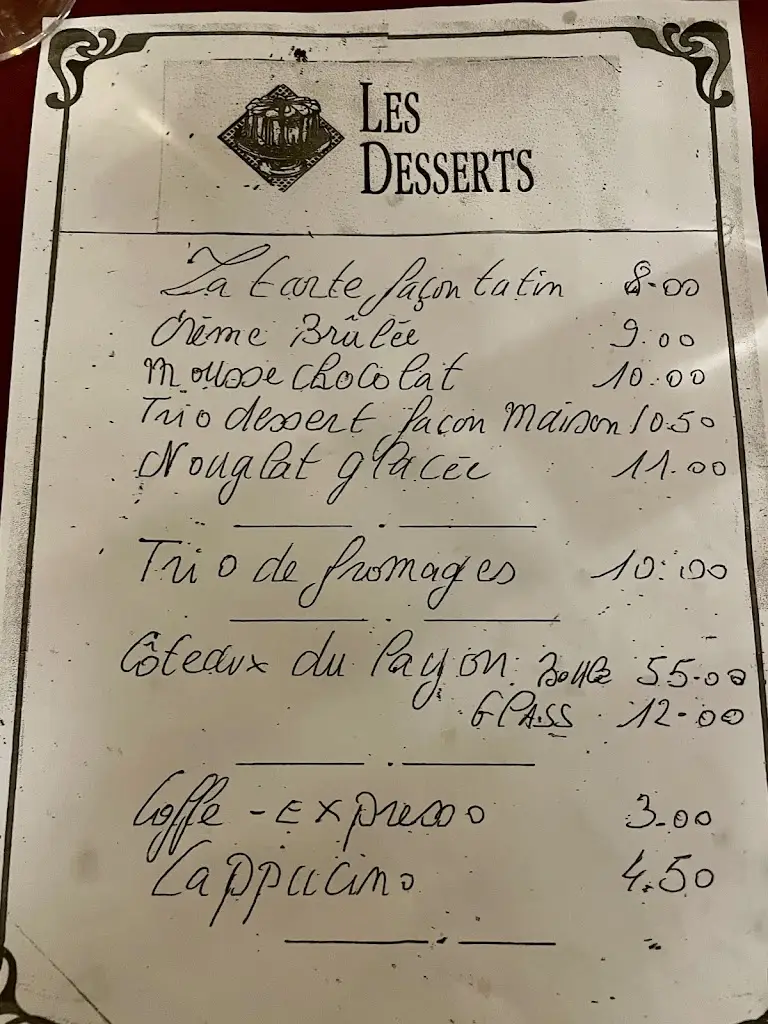 LES
DESSERTS
La tarte façon tatin 8.00
Crème Brûlée 9.00
Mousse chocolat 10.00
Trio dessert façon Maison 10.50
Nouglat glacée 11.00
Trio de fromages 10.00
Côteaux du Layon: 55.00
GLASS 12-00
Coffe - Expresso 3.00
Cappucino 4.50